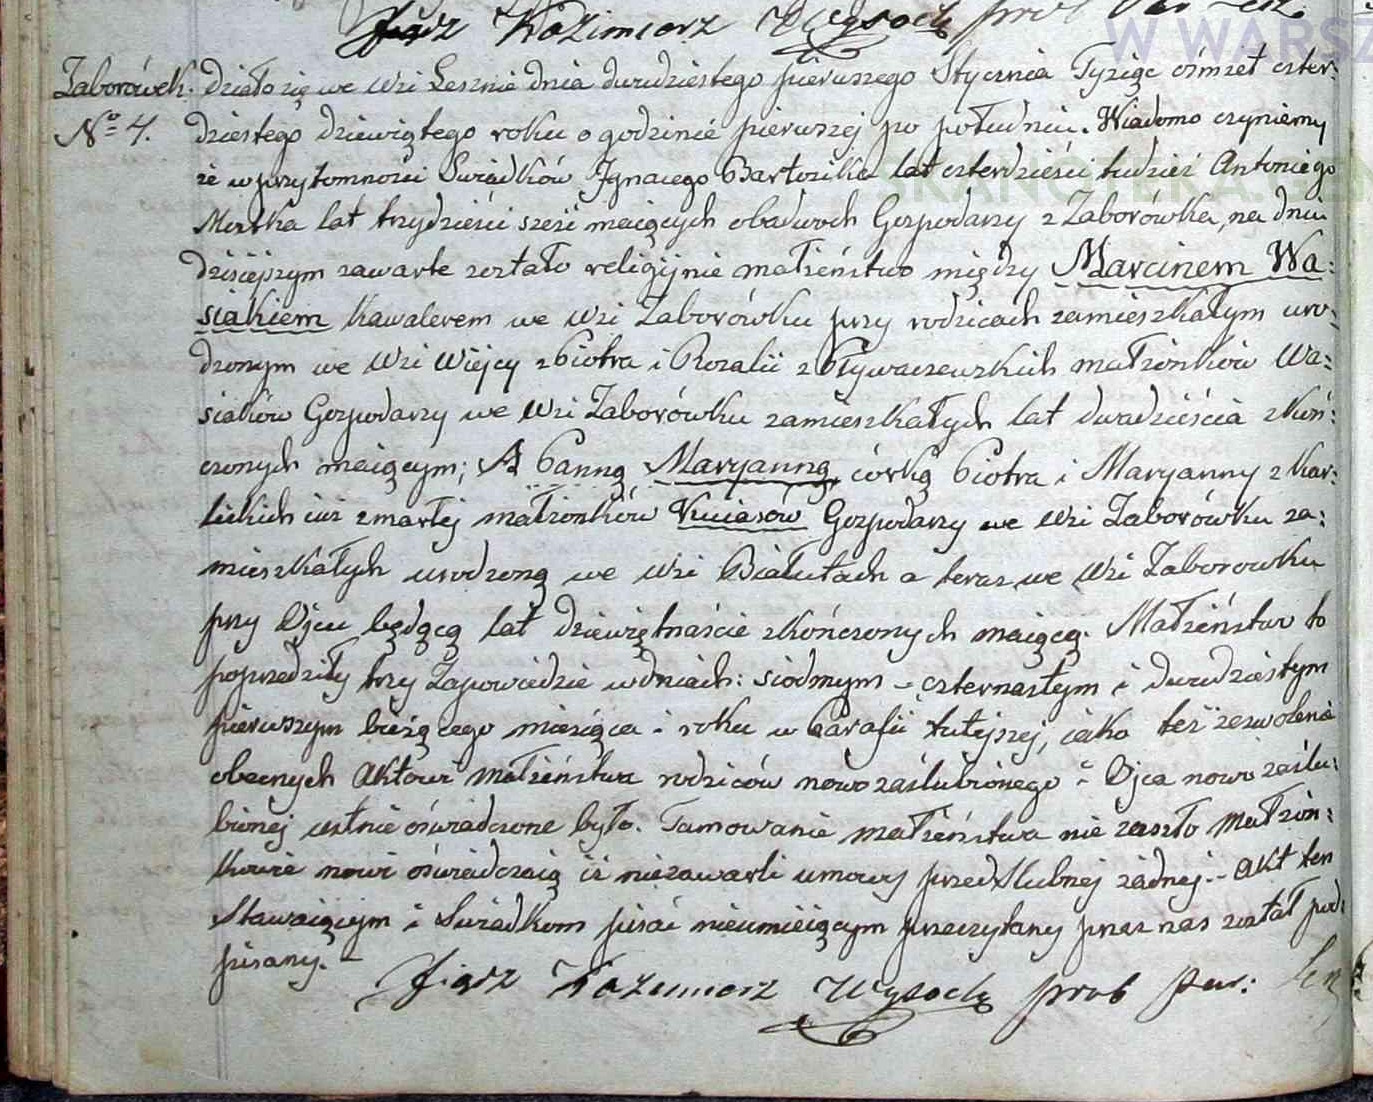 Jądz Kazimierz Wysocki prob Par Lesz.
W WARSZ
SKANOTEKA.GEN
Zaborówek. Działo się we Wsi Lesznie dnia dwudziestego pierwszego Stycznia Tysiąc ośmset czter=
No 4. dziestego dziewiątego roku o godzinie pierwszej po południu. Wiadomo czyniemy
że w przytomności Swiadków Ignacego Bartosika lat czterdzieści tudzież Antoniego
lat trzydzieści sześć maiących obadwoch Gospodarzy z Zaborówka, na dniu
dzisiejszym zawarte zostało religijnie małżeństwo między Marcinem Wa=
siakiem Kawalerem we Wsi Zaborówku przy rodzicach zamieszkałym uro=
dzonym we Wsi Wiejcy z Piotra i Rozalii z Pływaczewskich małżonków Wa=
siaków Gospodarzy we Wsi Zaborówku zamieszkałych lat dwadzieścia skoń=
czonych maiącym; A Panną Maryanną córką Piotra i Maryanny z Kar=
lickich iuż zmarłej małżonków Kuciasów Gospodarzy we Wsi Zaborówku za=
mieszkałych urodzoną we Wsi Białutach a teraz we Wsi Zaborowku
przy Ojcu będącą lat dziewiętnaście skończonych maiącą. Małżeństwo to
poprzedziły trzy Zapowiedzie w dniach: siódmym - czternastym i dwudziestym
pierwszym bieżącego miesiąca i roku w Parafii tutejszej, iako też zezwolenie
obecnych Aktowi Małżeństwa rodziców nowozaślubionego i Ojca nowo zaślu=
bionej ustnie oświadczone było. Tamowanie małżeństwa nie zaszło Małżon=
kowie nowi oświadczaią iż niezawarli umowy przedślubnej żadnej. - Akt ten
Stawaiącym i Swiadkom pisać nieumieiącym przeczytany przez nas został pod=
pisany. -
Jądz Kazimierz Wysocki prob Par: Lesz